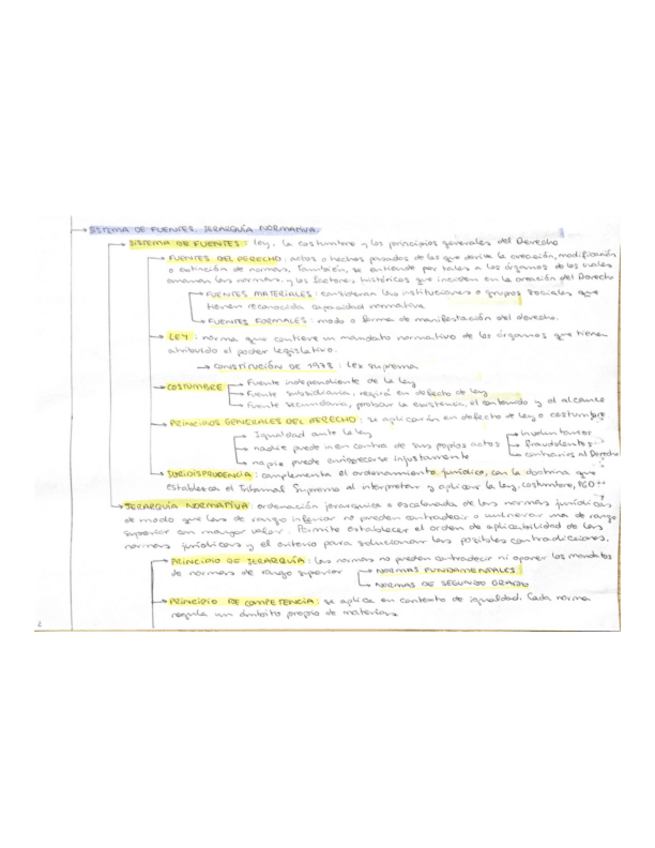 SISTEMA DE FUENTES. JERARQUÍA NORMATIVA.
SISTEMA DE FUENTES: ley, la costumbre y los principios generales del Derecho
FUENTES DEL DERECHO: actos o hechos pasados de los que deriva la creación, modificación
o extinción de normas. También, se entiende por tales a los órganos de los cuales
emanan las normas, y los factores históricos que inciden en la creación del Derecho
FUENTES MATERIALES: consideran las instituciones o grupos sociales que
tienen reconocida capacidad normativa
FUENTES FORMALES: modo o forma de manifestación del derecho.
LEY: norma que contiene un mandato normativo de los órganos que tienen
atribuido el poder legislativo.
→ CONSTITUCIÓN DE 1978: ley suprema
COSTUMBRE
Fuente independiente de la ley
Fuente subsidiaria, regirá en defecto de ley
Fuente secundaria, probar la existencia, el contenido y el alcance
PRINCIPIOS GENERALES DEL DERECHO: se aplicarán en defecto de ley o costumbre
Igualdad ante la ley
nadie puede ir en contra de sus propios actos
nadie puede enriquecerse injustamente
involuntarios
fraudulentos
contrarios al Derecho
JURIDISPRUDENCIA: complementa el ordenamiento jurídico, con la doctrina que
establezca el Tribunal Supremo al interpretar y aplicar la ley, costumbre, PGD
JERARQUÍA NORMATIVA: ordenación jerárquica o escalonada de las normas jurídicas
de modo que las de rango inferior no pueden contradecir o vulnerar una de rango
superior con mayor valor. Permite establecer el orden de aplicabilidad de las
normas jurídicas y el criterio para solucionar las posibles contradicciones.
PRINCIPIO DE JERARQUÍA: las normas no pueden contradecir ni oponer los mandatos
de normas de rango superior
NORMAS FUNDAMENTALES
NORMAS DE SEGUNDO GRADO
PRINCIPIO DE COMPETENCIA: se aplica en contexto de igualdad. Cada norma
regula un ámbito propio de materias
2